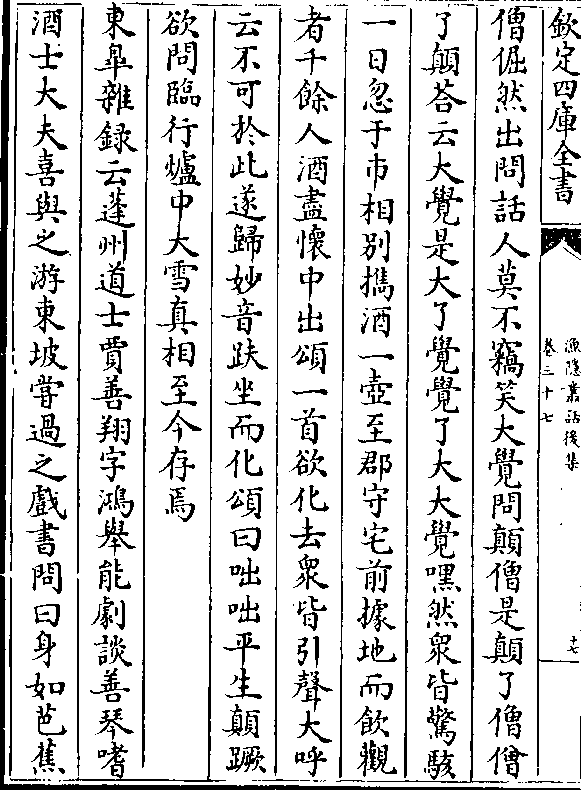 欽定四庫全書
漁隱叢話後集
卷三十七
十七
僧倔然出問話人莫不竊笑大覺問顛僧是顛了僧僧
了顛荅云大覺是大了覺覺了大大覺嘿然衆皆驚駭
一日忽于市相別携酒一壺至郡守宅前據地而飲觀
者千餘人酒盡懷中出頌一首欲化去衆皆引聲大呼
云不可於此遂歸妙音趺坐而化頌曰咄咄平生顛蹶
欲問臨行爐中大雪真相至今存焉
東臯雜録云蓬州道士賈善翔字鴻舉能劇談善琴嗜
酒士大夫喜與之游東坡甞過之戲書問曰身如芭蕉